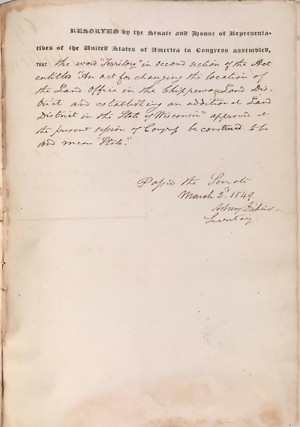 RESOLVED by the Senate and House of Representa-
tives of the United States of America in Congress assembled,
THAT the word "Territory" in second section of the Act
entitled "An act for changing the location of
the Land Office in the Chippeway Land Dis-
trict and establishing an additional Land
District in the State of Wisconsin" approved at
the present session of Congress be construed to be
and mean "State."
Passed the Senate
March 2d. 1849
Asbury Dickins
Secretary